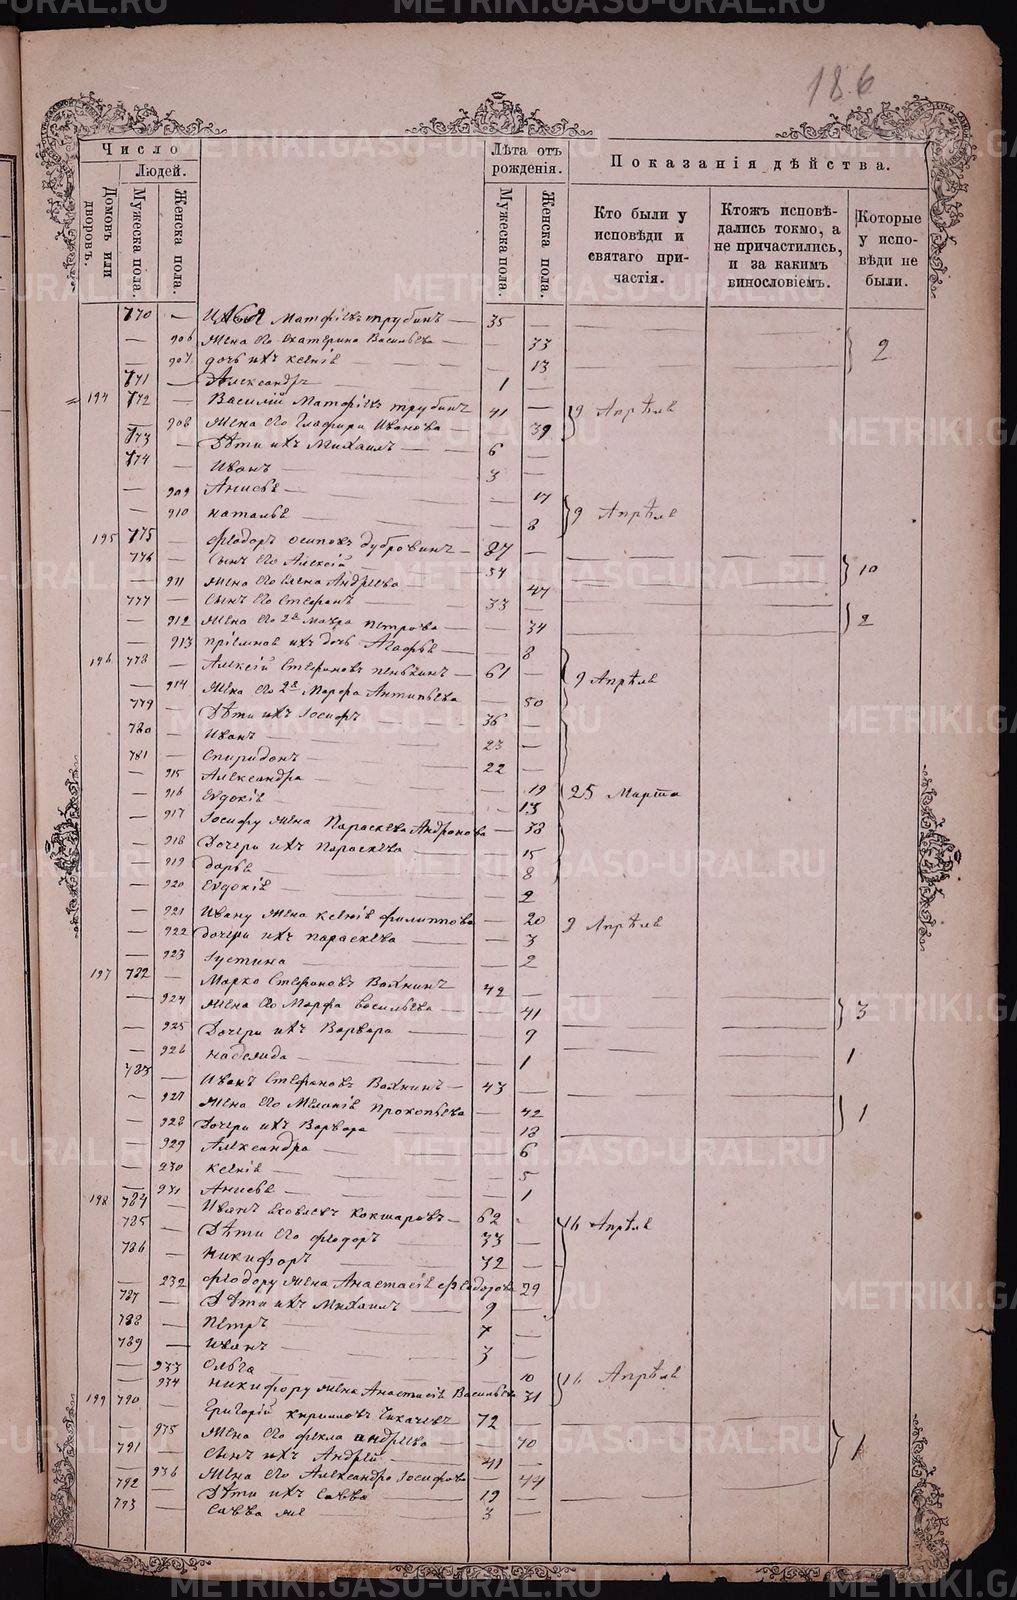 186
Число
Людей.
Домовъ или дворовъ.
Мужеска пола.
Женска пола.
Лѣта отъ рожденія.
Мужеска пола.
Женска пола.
Показанія дѣйства.
Кто были у исповѣди и святаго причастія.
Ктожъ исповѣдались токмо, а не причастились, и за какимъ винословіемъ.
Которые у исповѣди не были.
770 — Матфіевъ трубинъ — 35 —
— 906 жена его Екатерина Васильева — — 33 2
— 907 дочь ихъ Ксенія — — 13
771 — Александръ — 1
194 772 — Василій Матфіевъ трубинъ 41 — 9 Апрѣля
— 908 жена его Глафира Иванова — 39
773 — Дѣти ихъ Михаилъ — 6 —
774 — Иванъ — 3 —
— 909 Анисья — — 17
— 910 наталья — — 8 9 Апрѣля
195 775 — Ѳеодоръ осиповъ дубровинъ — 87 —
776 — Сынъ его Алексій — 54 — 10
— 911 жена его Елена Андреева — 47
777 — Сынъ его Стефанъ — 33 —
— 912 жена его 2я Мавра Петрова — — 34 2
— 913 пріемная ихъ дочь Агафья — — 8
196 778 — Алексій Стефановъ пенькинъ — 61 — 9 Апрѣля
— 914 жена его 2я Марфа Антипьева 50
779 — Дѣти ихъ Іосифъ — 36 —
780 — Иванъ — 23 —
781 — Спиридонъ — 22 —
— 915 Александра — — 19 25 Марта
— 916 Евдокія — — 13
— 917 Іосифу жена Параскева Андронова — 38
— 918 Дочери ихъ Параскева — — 15
— 919 дарья — — 8
— 920 Евдокія — — 2
— 921 Ивану жена Ксенія филиппова — 20 9 Апрѣля
— 922 дочери ихъ параскева — — 3
— 923 Густина — — 2
197 782 — Марко Стефановъ Вахнинъ 42 —
— 924 жена его Марфа Васильева — — 41 3
— 925 Дочери ихъ Варвара — — 9
— 926 надежда — — 1 1
783 — Иванъ Стефановъ Вахнинъ — 43 —
— 927 жена его Меланія Прокопьева — 42 1
— 928 Дочери ихъ Варвара — — 18
— 929 Александра — — 6
— 930 Ксенія — — 5
— 931 Анисья — — 1
198 784 — Иванъ яковлевъ Кокшаровъ — 62 - 16 Апрѣля
785 — Дѣти его ѳеодоръ — 33 —
786 — Никифоръ — 32 —
— 932 Ѳеодору жена Анастасія Ѳеодорова 29
787 — Дѣти ихъ Михаилъ — 9 —
788 — Петръ — 7 —
789 — Иванъ — 3 —
— 933 Ольга — — 10
— 934 Никифору жена Анастасія Васильева 31 16 Апрѣля
199 790 — Григорій кирилловъ Чикачевъ — 72 —
— 935 жена его Фекла андреева — — 70 1
791 — Сынъ ихъ Андрей — 41 —
— 936 жена его Александра Іосифова — 44
792 — Дѣти ихъ Савва — 19 —
793 — Савва же — 3 —
METRIKI.GASO-URAL.RU